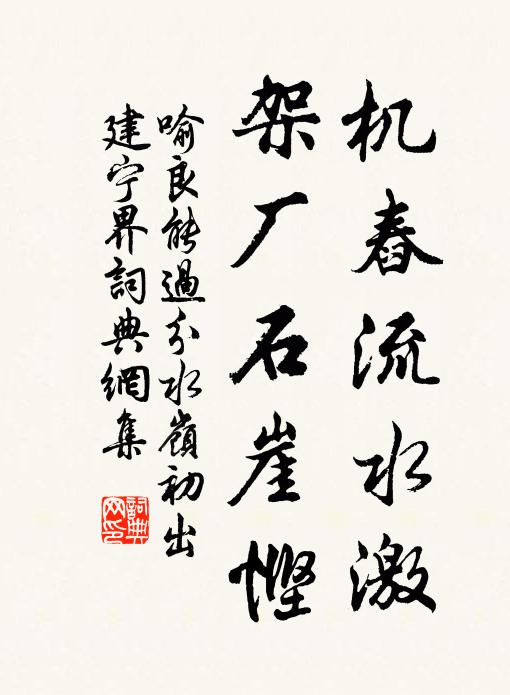 机舂流水激
架厂石崖慳
喻良能過分水嶺初出
建宁界詞典網集
詞典
网印